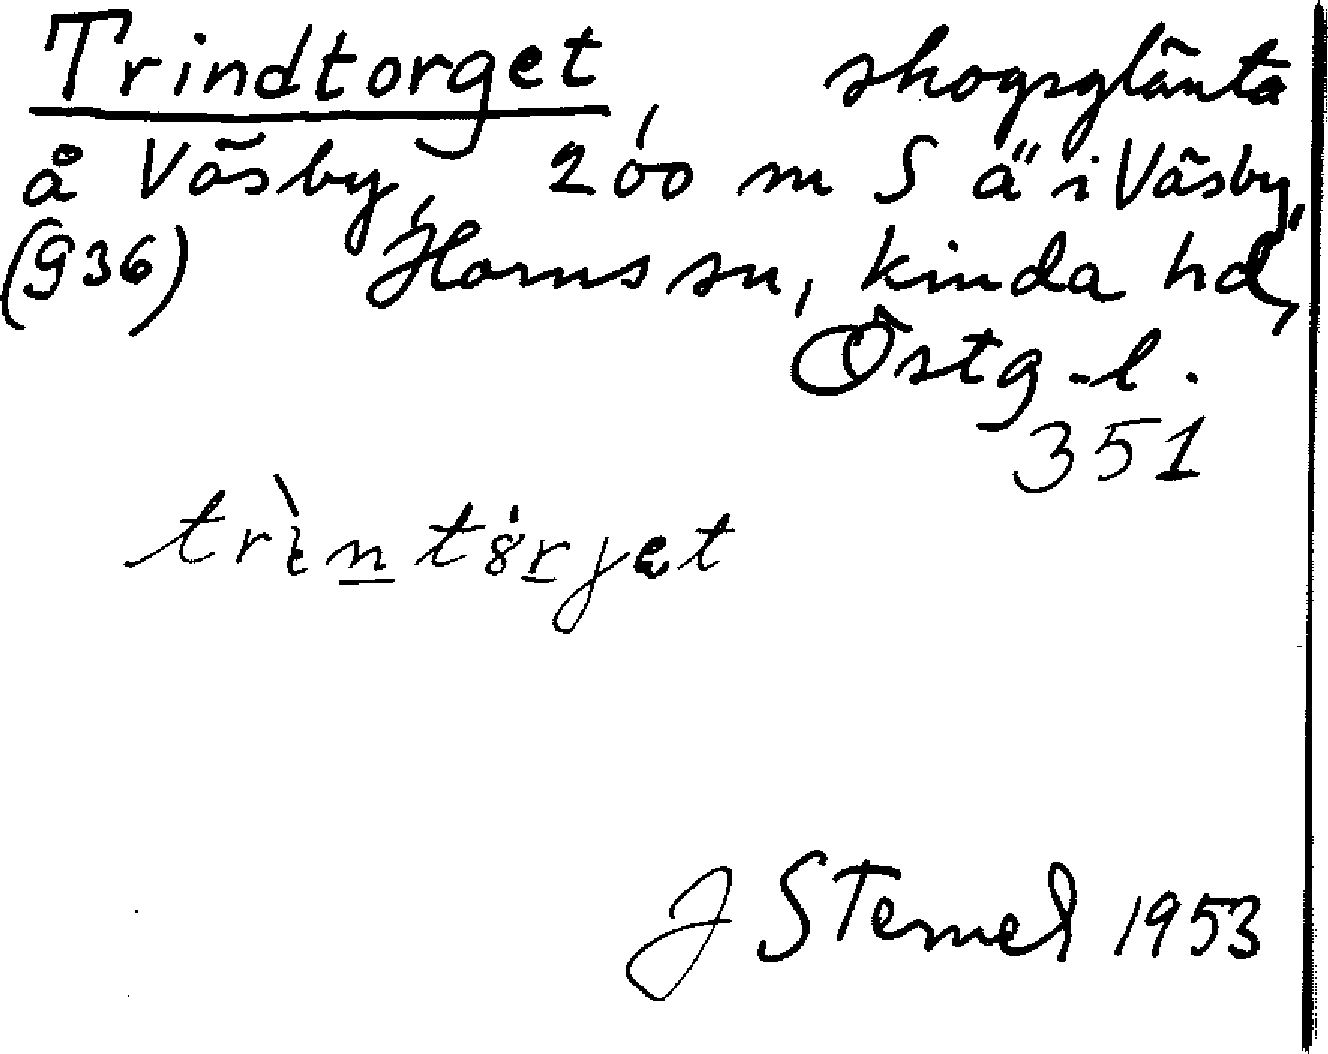 Trindtorget, skogsglänta
å Väsby, 200 m S "ä" i Väsby"
(936) Horns sn, Kinda hd,
Östg-l.
351
trìntȯrjet
J STernel 1953